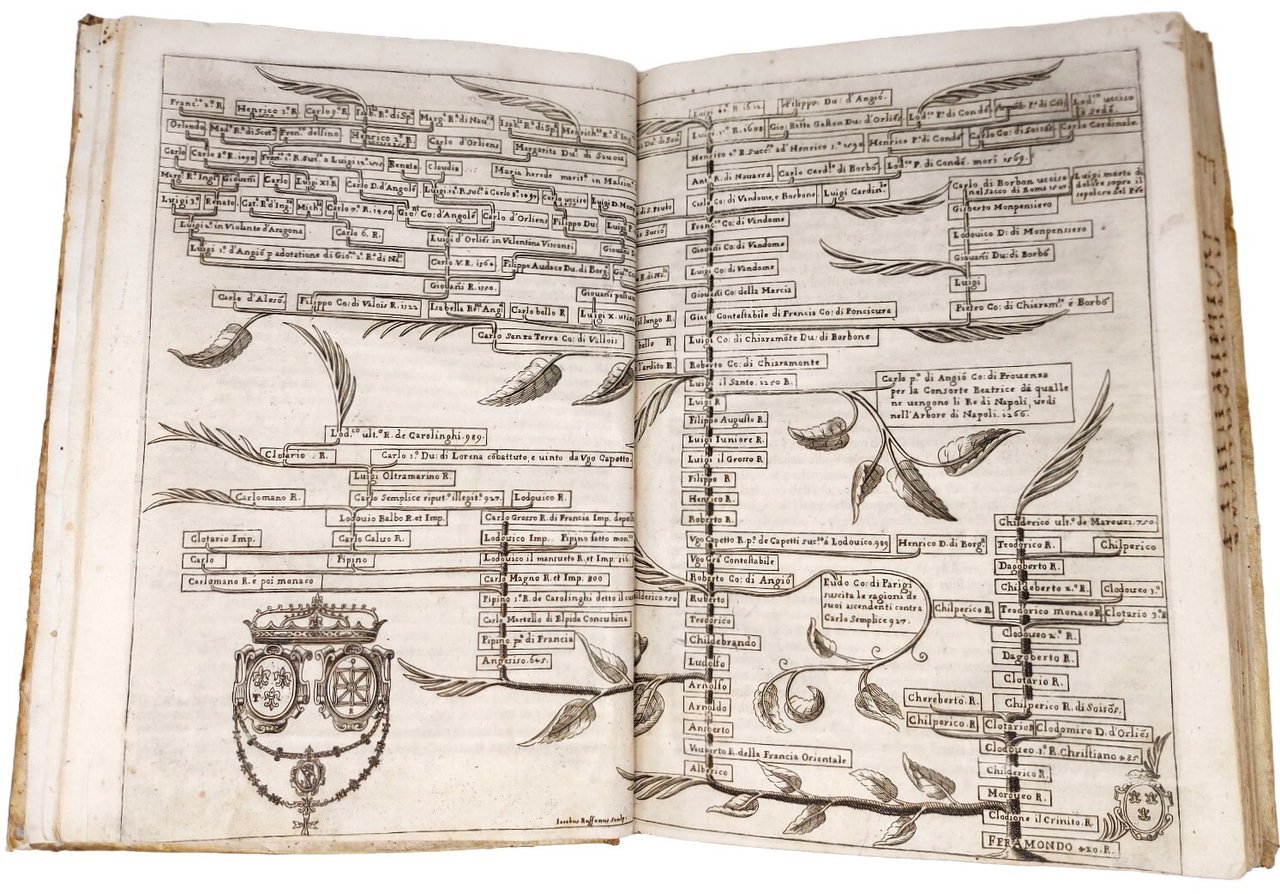 Franc.º 2.º R.
Henrico 3.º R.
Carlo 9.º R.
Isab. R. di Sp.
Marg. R. di Nau.
Isab. R. di Sp.
Orlando
Mad. R. di Scot.
Fran. delfino.
Henrico 2.º R.
Carlo d'Orliens
Margarita Du. di Sauoia
Carlo
Carlo 8.º R. 1490
Renata
Claudia
Maria herede marit. in
Marg. R. Ingl.
Giouāni
Carlo
Luigi XI. R.
Carlo D. d'Angolē
Carlo ucciso
Luigi 3.º
Renato.
Cat. R. d'Ing.
Mich.
Carlo 7.º R.
Gio. Co: d'Angolē.
Carlo d'Orliens
Filippo Du:
Luigi 2.º in Violante d'Aragona
Carlo 6. R.
Luigi d'Orliēs in Valentina Visconti
Luigi 1.º d'Angiō p adotatione di Gio. 1.ª R. di Na.
Carlo V. R. 1364.
Filippo Audace Du: di Borg.
Giouāni R. 1350.
Carlo d'Alesō.
Filippo Co: di Valois R. 1322
Isabella R. Ang.
Carlo bello R
Luigi X.
Carlo Senza Terra Co: di Vallois
Lod.co ult.º R. de Carolinghi. 989.
Clotario . R.
Carlo 1.º Du: di Lorena cōbattuto, e uinto da Vgo Capetto
Luigi Oltramarino R.
Carlomano R.
Carlo Semplice riput.º illegit.º 927.
Lodouico R.
Lodouio Balbo R. et Imp.
Carlo Grosso R. di Francia Imp.
Clotario Imp.
Carlo Caluo R.
Lodouico Imp.
Pipino fatto mon.
Carlo
Pipino
Lodouico il mansueto R. et Imp.
Carlomano R. é poi monaco
Carlo Magno R. et Imp. 800
Pipino 1.º R. de Carolinghi detto il
Carlo Martello di Elpida Concubina
Pipino p.º di Francia
Angesiso. 645.
Iacobus Ruffonus sculp.
Filippo. Du: d'Angiō.
Gio: Batta Gaston Du: d'Orliēs.
Lod.co P. di Condē.
Lod.co ucciso
a Sedā.
Luigi 13.º R. 1608.
Henrico P. di Condē.
Carlo Co: di Soisōs.
Carlo Cardinale.
Henrico 4.º R. Succ. ad Henrico 3.º 1590
Ant. R. di Nauarra
Carlo Card. di Borbō.
Lod.co P. di Condē. morì 1569.
Carlo Co: di Vandome, e Borbone
Luigi Cardin.
Carlo di Borbon ucciso
nel sacco di Roma 1527
Luigi morto di
dolore sopra il
sepolcro del P̄re
di S. Paulo
Franc.º Co: di Vandome
Gilberto Monpensiero
Giouāni Co: di Vandome
Lodouico D: di Monpensiero
Luigi Co: di Vandome
Giouāni Du: di Borbō
Giouāni Co: della Marcia
Luigi
Giac. Contestabile di Francia Co: di Poncicura
Pietro Co: di Chiaram.te é Borbō
Luigi Co: di Chiaramōte Du: di Borbone
Roberto Co: di Chiaramonte
Luigi il Santo. 1250 R.
Carlo p.º di Angiō Co: di Prouenza
per la Consorte Beatrice dá qualle
ne uengono li Re di Napoli, uedi
nell'Arbore di Napoli. 1266.
Luigi R
Filippo Augusto R.
Luigi Iuniore R.
Luigi il Grosso R.
Filippo R
Henrico R.
Roberto R.
Vgo Capetto R. p.º de Capetti suc.º á Lodouico. 989
Henrico D. di Borg.
Vgo Grā Contestabile
Roberto Co: di Angiō
Eudo Co: di Parigi
suscita le ragioni de
suoi ascendenti contra
Carlo Semplice 927.
Ruberto
Teodorico
Childebrando
Ludolfo
Arnolfo
Arnoldo
Ansberto
Vauberto R. della Francia Orientale
Alberico
Childerico ult.º de Marouei. 750.
Teodorico R.
Chilperico
Dagoberto R.
Childeberto 2.º R.
Clodoueo 3.º
Chilperico R.
Teodorico monaco R.
Clotario 3.º R
Clodoueo 2.º R.
Dagoberto R.
Clotario R.
Chereberto R.
Chilperico R. di Soisōs.
Chilperico R.
Clotario R
Clodomiro D. d'Orliēs
Clodoueo 1.º R. Christiano 485
Childerico R.
Moroueo R.
Clodione il Crinito. R.
FERAMONDO 420. R.